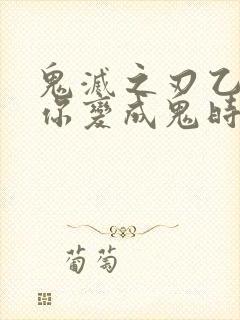 鬼滅之刃乙
你變成鬼時
葡萄